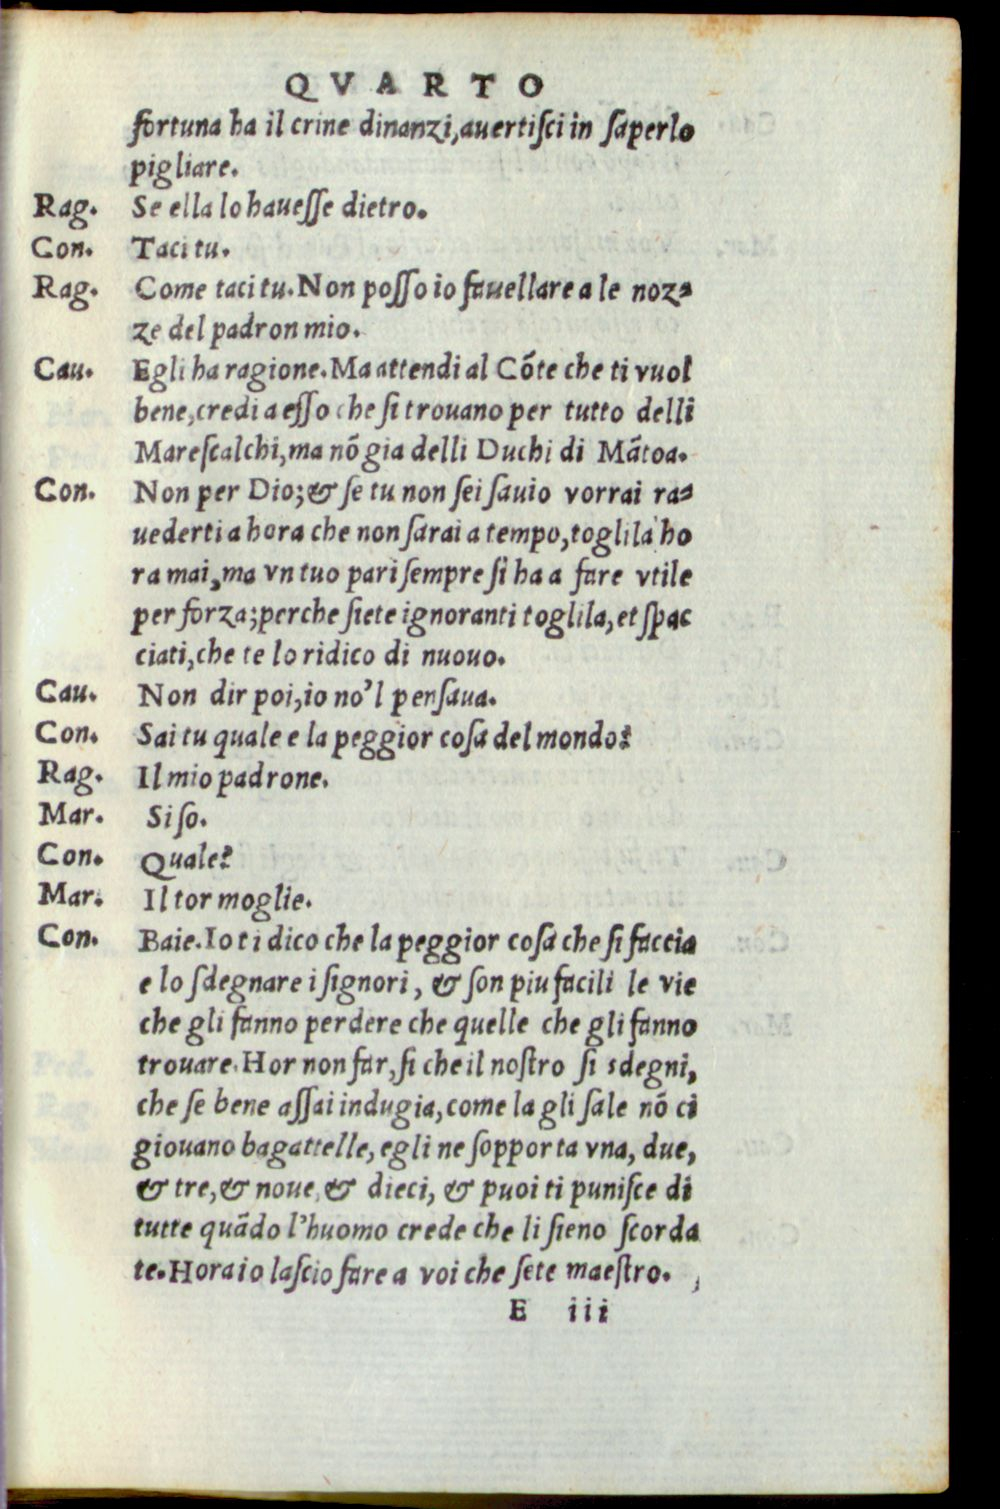 QVARTO
fortuna ha il crine dinanzi, auertisci in saperlo
pigliare.
Rag. Se ella lo hauesse dietro.
Con. Taci tu.
Rag. Come taci tu. Non posso io fauellare a le noz-
ze del padron mio.
Cau. Egli ha ragione. Ma attendi al Cōte che ti vuol
bene, credi a esso che si trouano per tutto delli
Marescalchi, ma nō gia delli Duchi di Mātoa.
Con. Non per Dio; & se tu non sei sauio vorrai ra-
uederti a hora che non sarai a tempo, toglila ho
ra mai, ma vn tuo pari sempre si ha a fare vtile
per forza; perche siete ignoranti toglila, et spac
ciati, che te lo ridico di nuouo.
Cau. Non dir poi, io no'l pensaua.
Con. Sai tu quale e la peggior cosa del mondo?
Rag. Il mio padrone.
Mar. Si so.
Con. Quale?
Mar. Il tor moglie.
Con. Baie. Io ti dico che la peggior cosa che si faccia
e lo sdegnare i signori, & son piu facili le vie
che gli fanno perdere che quelle che gli fanno
trouare. Hor non far, si che il nostro si sdegni,
che se bene assai indugia, come la gli sale nō ci
giouano bagattelle, egli ne sopporta vna, due,
& tre, & noue, & dieci, & puoi ti punisce di
tutte quādo l'huomo crede che li sieno scorda
te. Hora io lascio fare a voi che sete maestro.
E iii